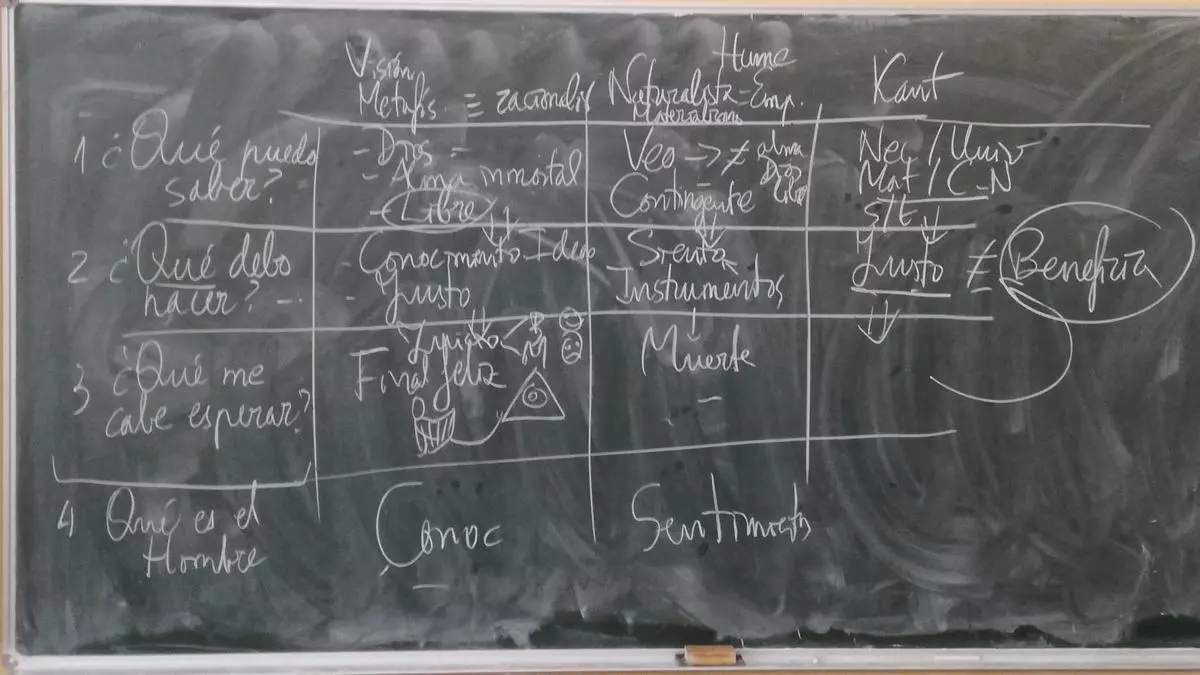 Visión
Metafís. ≡ racionalis
Hume
Naturalista - Emp.
Materialismo
Kant
1 ¿Qué puedo
saber?
- Dios =
- Alma inmortal
- Libre
Veo → ≠ alma
Dios
Contingente
Nec / Univ
Mat / C-N
s/t
2 ¿Qué debo
hacer? -
- Conocimiento Ideas
- Justo
Siento
Instrumentos
Justo ≠ Beneficia
3 ¿Qué me
cabe esperar?
Final feliz
Muerte
-
4 Qué es el
Hombre
Conoc
Sentimiento